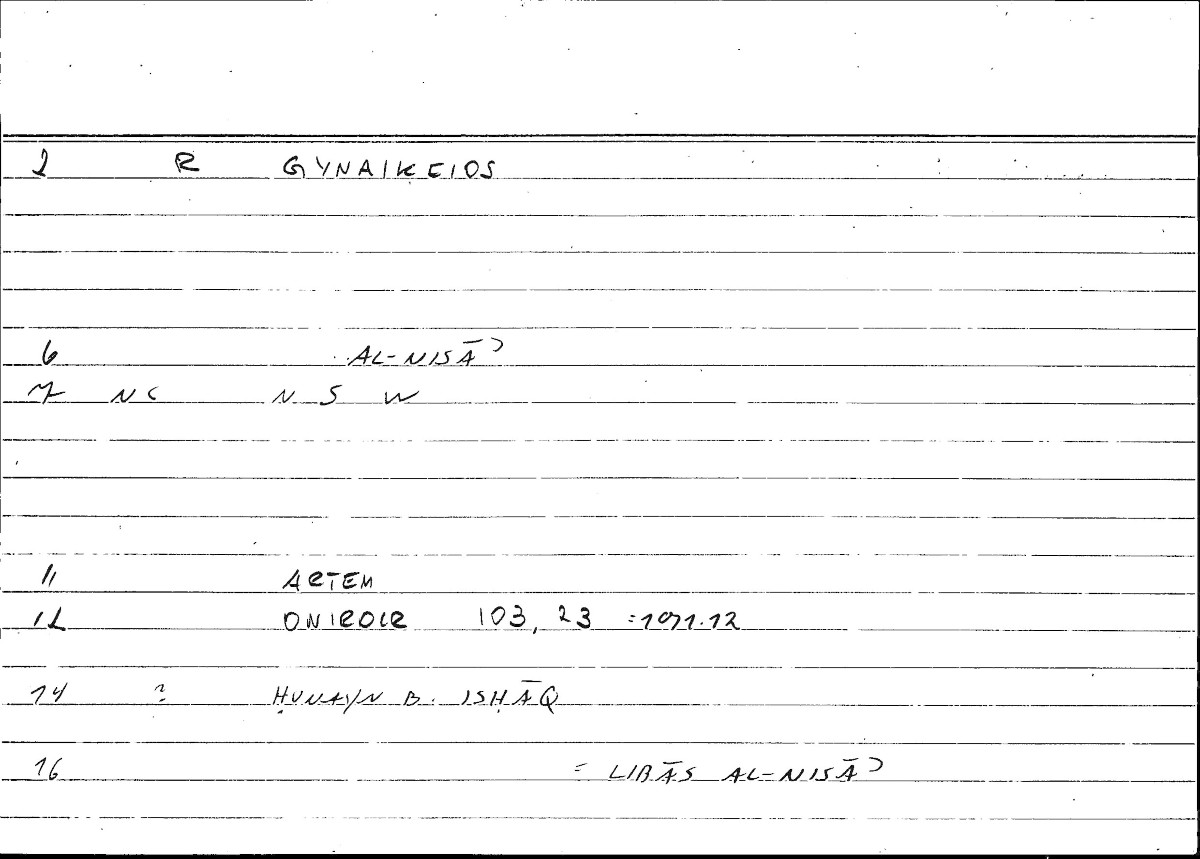 2 R GYNAIKEIOS
6 AL-NISĀʾ
7 NC N S W
11 ARTEM
12 ONIROCR 103, 23 =191.12
14 ? ḤUNAYN B. ISḤĀQ
16 = LIBĀS AL-NISĀʾ